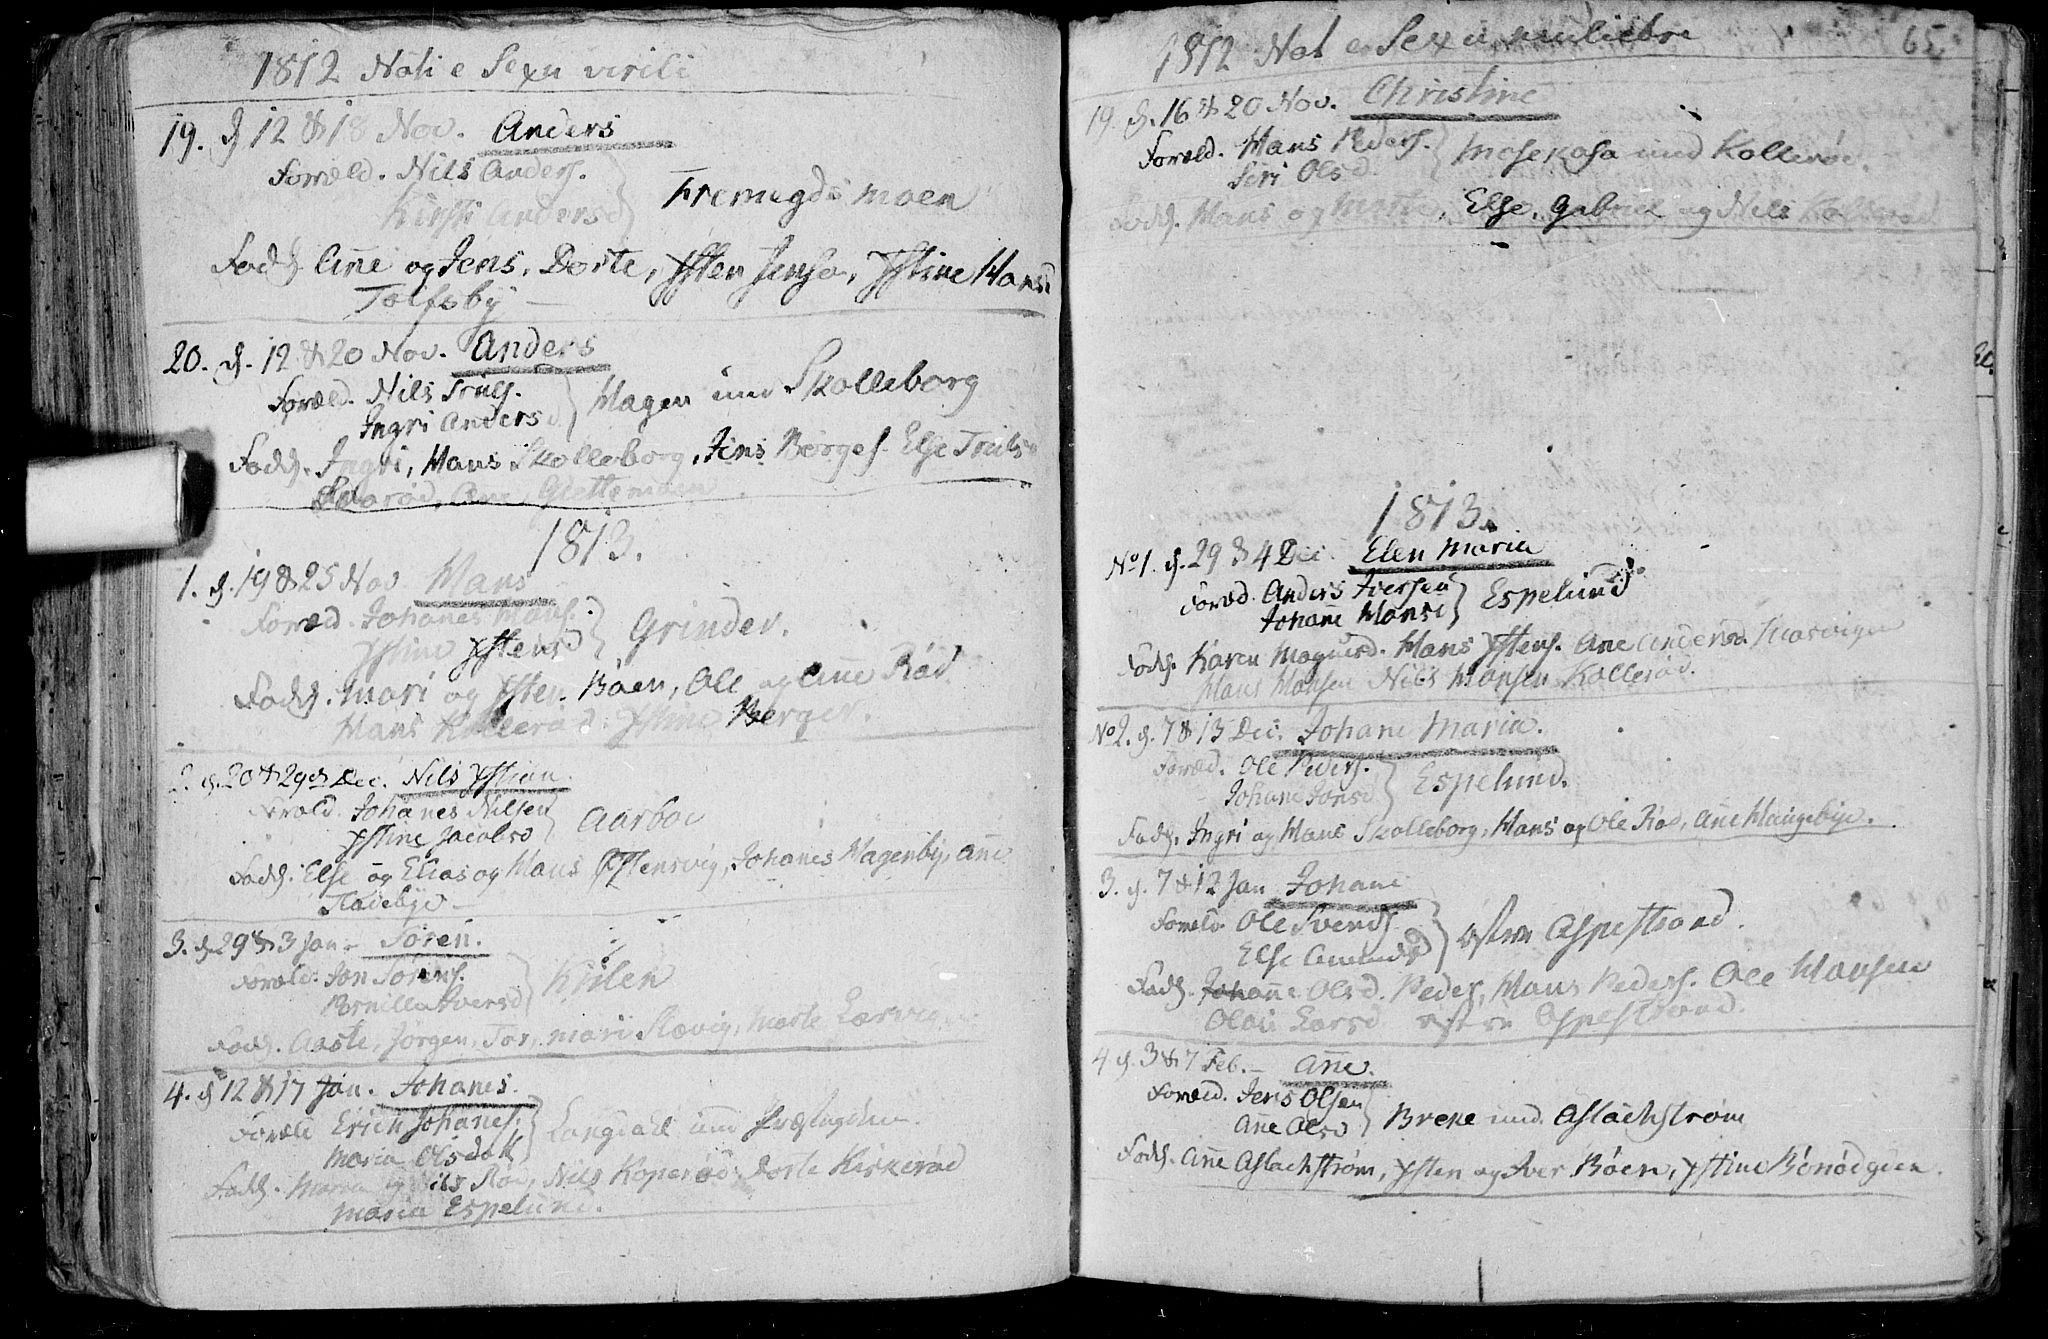 1812 Nati e Sexu virili
19. d. 12 & 18 Nov. Anders
Foræld. Nils Anders.
Kirsti Andersd
Fremigdsmoen
Fadd. Añe og Jens, Dorte, Xsten Jensø, Xstine Hansd
Tolfsby —
20. d. 12 & 20 Nov. Anders
Foræld. Nils Truls.
Ingri Andersd
Hagen und Skolleborg
Fadd. Ingri, Hans Skolleborg, Jens Børges. Else Truls
Ane
1813.
1. d. 19 & 25 Nov Hans
Foræld. Johanes Hans.
Xstine Xstensd
Grinder.
Fadd. Mari og Xsten Båen, Ole og Añe Rød
Hans Kollerød. Xstine Berger.
2. d. 20 & 29de Dec. Nils Xstian.
Foræld. Johanes Nilsen
Xstine Jacobsd
Aarboe
Fadd. Else og Elias og Hans Xstensvig, Johanes Hagenby, Añe
3. d. 29 & 3 Jan — Søren.
Foræld. Jon Sørens.
Pernille Iversd
Kiilen
Fadd. Aaste, Jørgen, Tor, Mari Slævig, Marte
4. d 12 & 17 Jan. Johanes.
Foræld Erich Johanes.
Maria Olsdok
Langdahl und
Fadd. Maria og Nils Røe, Nils Koperød, Dorte Kirkerød
Maria Espelund.
1812 Nat e Sexu muliebri
65.
19. d. 16 & 20 Nov. Christine
Foræld. Hans Peders.
Siri Olsd.
Mosekasa und Kollerøe.
Fadd. Hans og Marte, Else, Gabriel og Nils
1813.
No 1. d. 29 & 4 Dec. Elen Maria
Foræd. Anders Iversen
Johañe Hansd
Espelund
Fadd. Karen Magnusd. Hans Xstens. Ane Andersd.
Hans Hansen Nils Hansen Kollerød.
No 2. d. 7 & 13 Dec. Johane Maria.
Foræd. Ole Peders.
Johane Jonsd
Espelund.
Fadd. Ingri og Hans Skolleborg, Hans og Ole Rød, Añe Haugebye.
3. d. 7 & 12 Jan Johane
Foræld. Ole Svends.
Else Amunds
østre Aspestrand.
Fadd. Johañe Olsd. Peder, Hans Peders. Ole Hansen
Larsd østre Aspestrand.
4 d. 3 & 7 Feb. — Añe.
Foræd. Jens Olsen
Añe Olsd
Breke und. Aslachstrøm
Fadd. Añe Aslachstrøm, Xsten og Iver Båen, Xstine